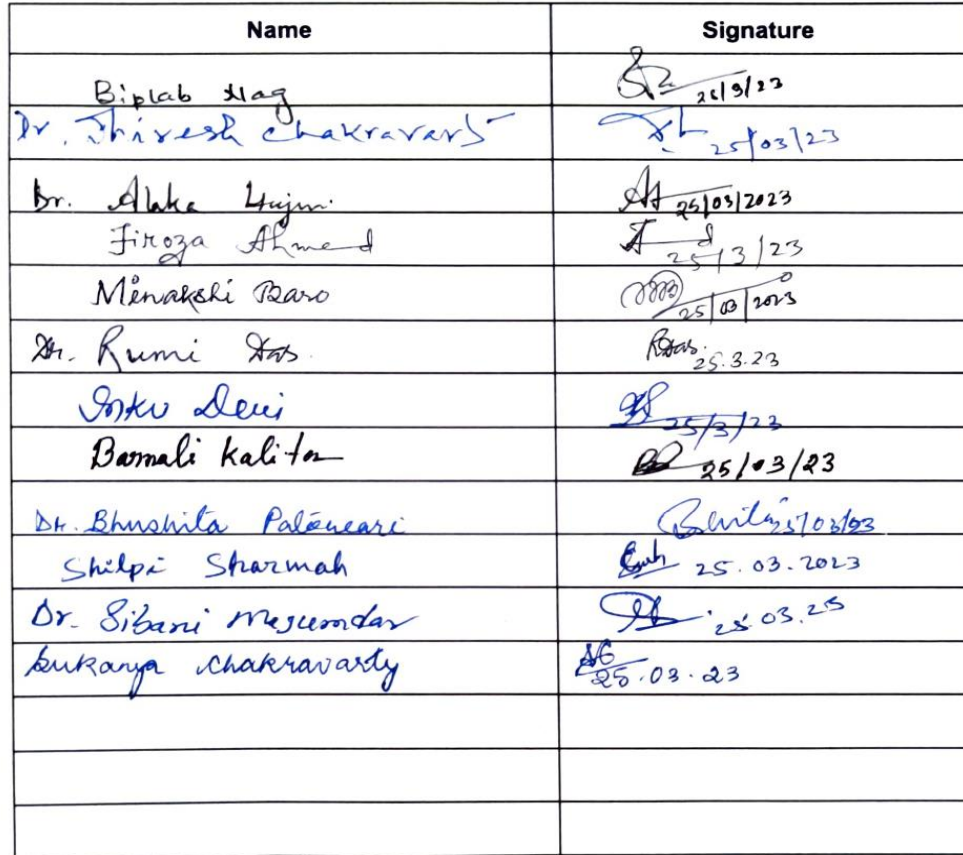 Name Signature
Biplab Nag 25/3/23
Dr. Chakravarty 25/03/23
Dr. Alaka 25/03/2023
Firoza Ahmed 25/3/23
Minakshi Baro 25/03/2023
Dr. Rumi Das. RDas. 25.3.23
Devi 25/3/23
Barnali Kalita 25/03/23
Dr. Bhushita 25/03/23
Shilpi Sharmah 25.03.2023
Dr. Sibani Mazumdar 25.03.25
Sukanya Chakravarty 25.03.23